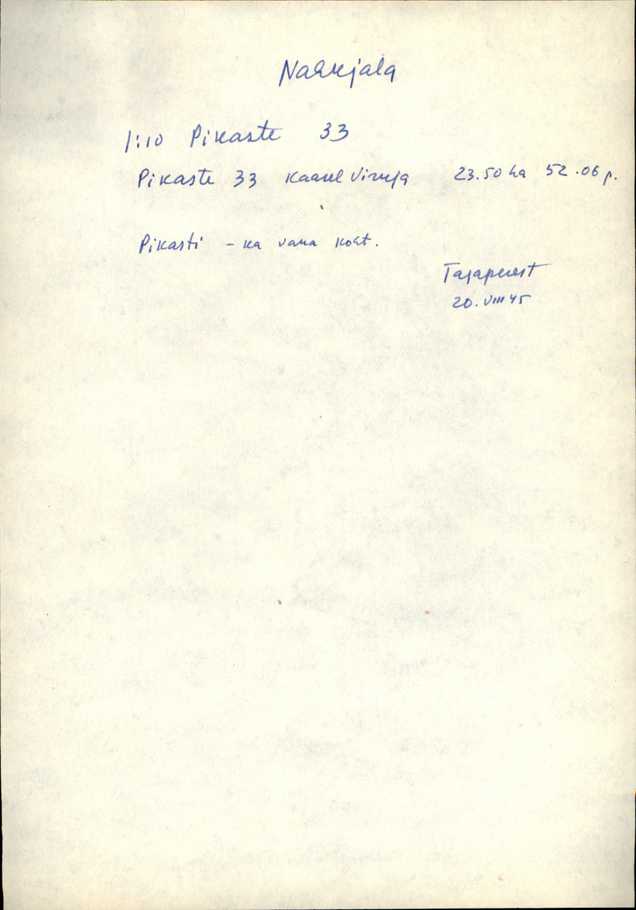 Nahkjala
1:10 Pikaste 33
Pikaste 33 Kaarel Viruja 23.50 ha 52.06 r.
Pikasti - ka vana koht.
20. VIII 45